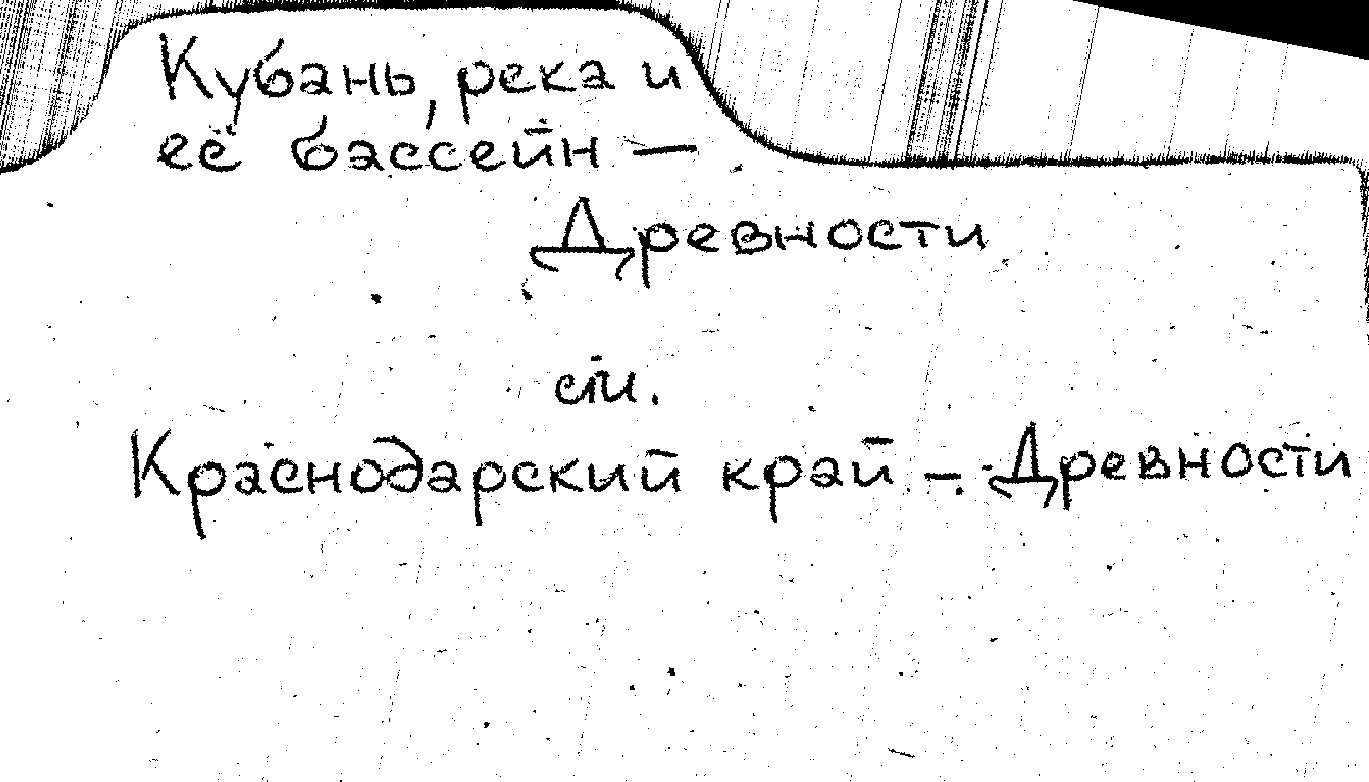 Кубань, река и
её бассейн —
Древности
см.
Краснодарский край — Древности